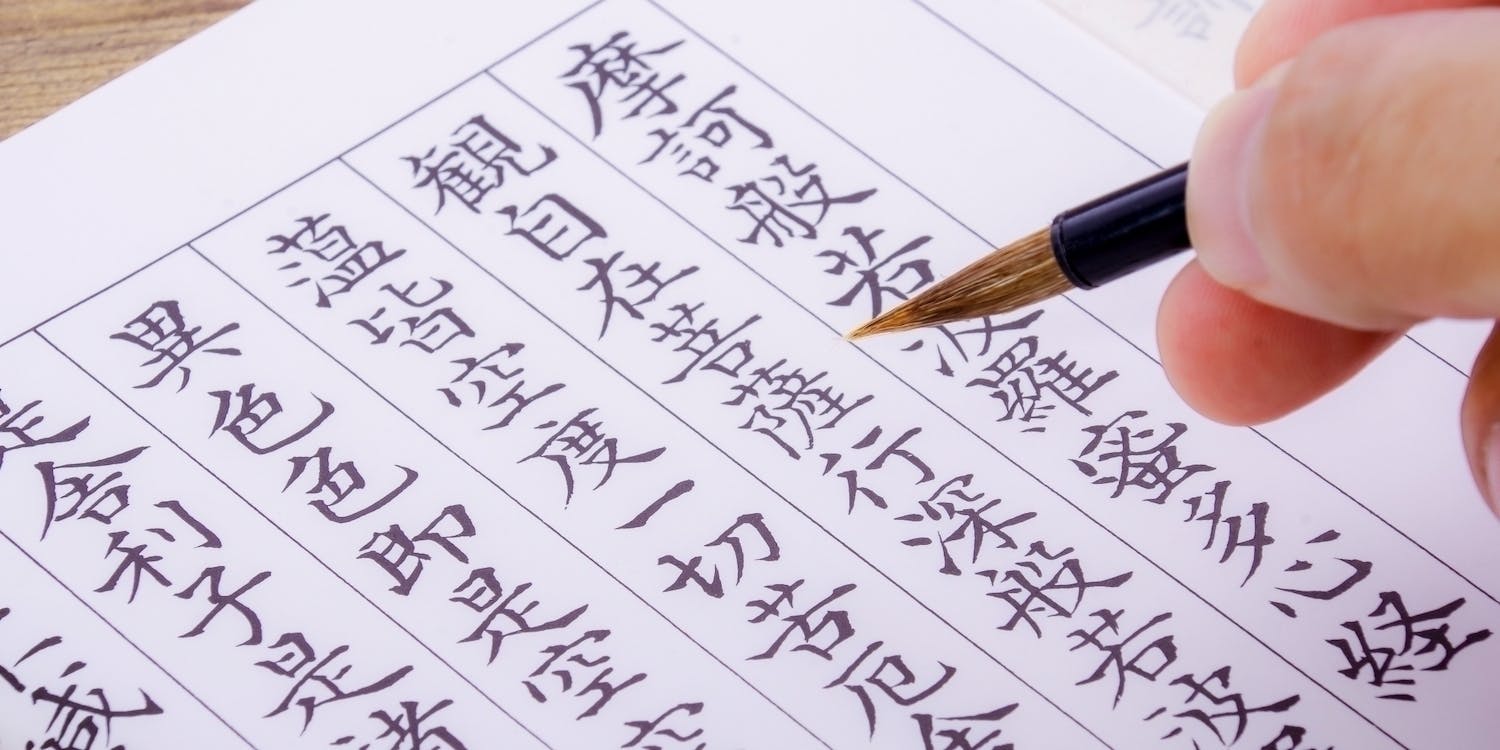 摩訶般若波羅蜜多心経
観自在菩薩行深般若波
薀皆空度一切苦厄舎
異色色即是空空
是舎利子是諸
不減